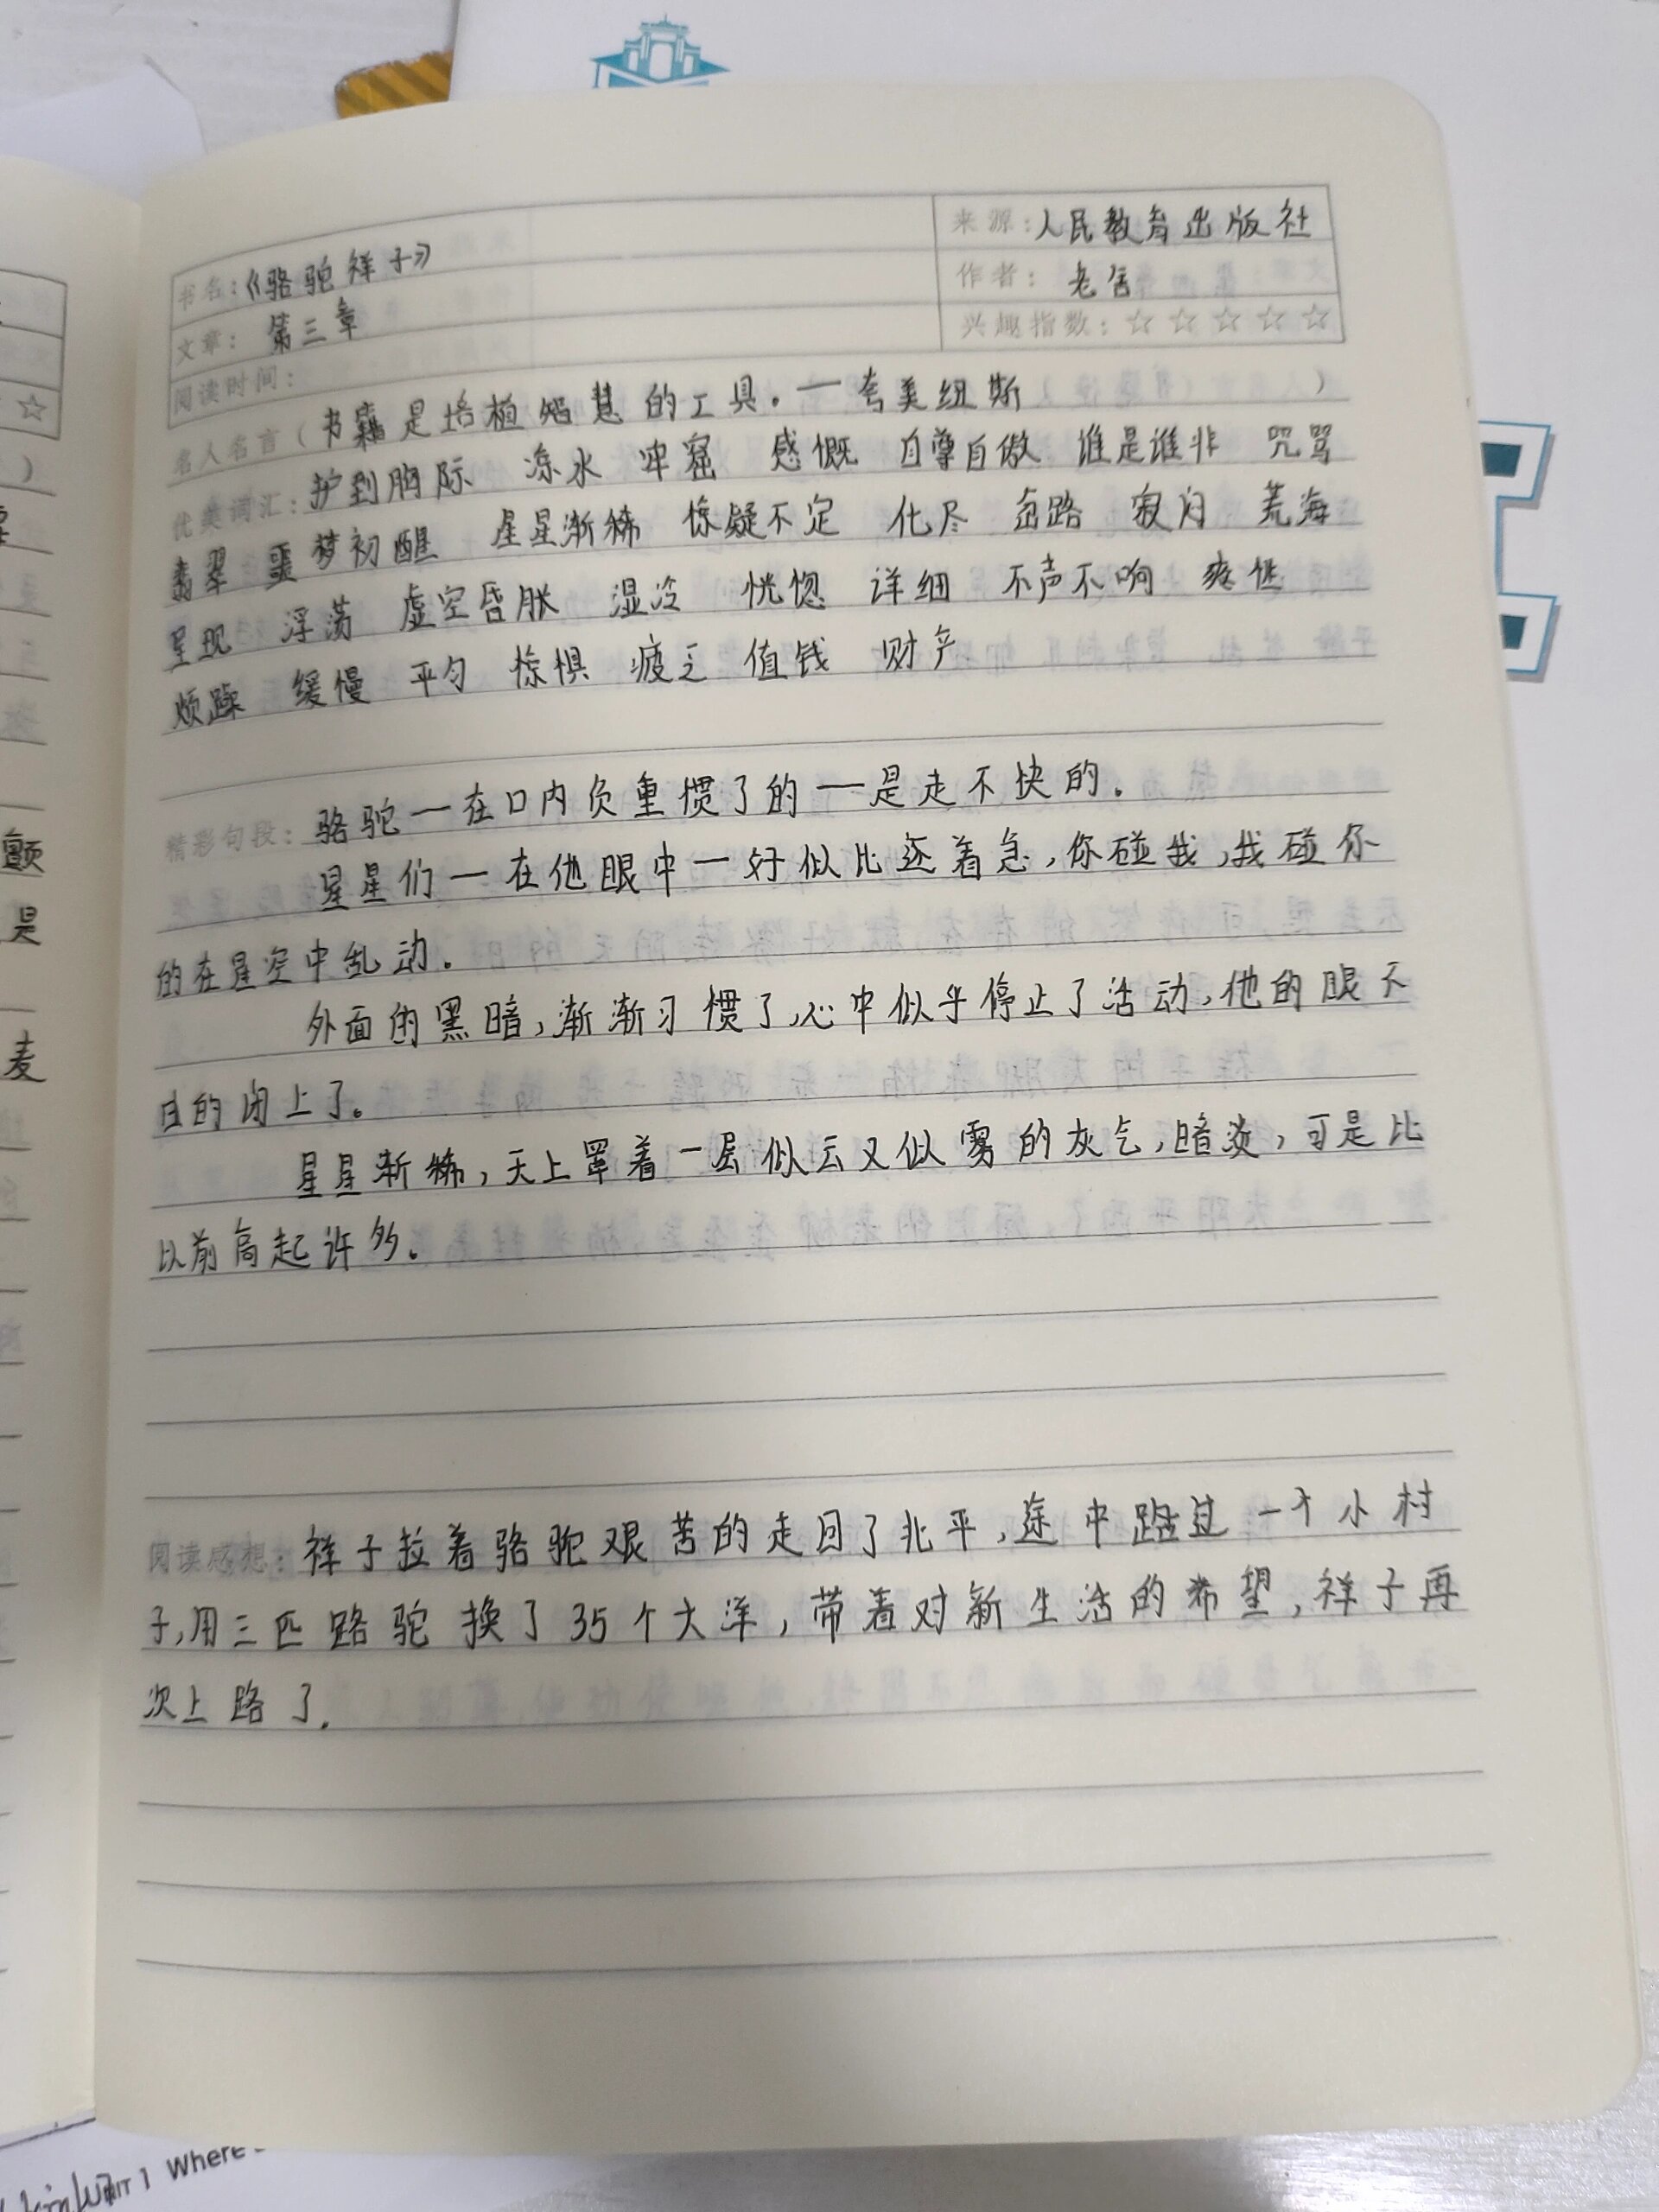 书名：《骆驼祥子》
来源：人民教育出版社
文章：第三章
作者：老舍
阅读时间：
兴趣指数：☆☆☆☆☆
名人名言（书籍是培植智慧的工具。一夸美纽斯）
优美词汇：护到胸际 凉水 牢窟 感慨 自尊自傲 谁是谁非 咒骂
翡翠 噩梦初醒 星星渐稀 惊疑不定 化尽 岔路 寂闷 荒海
呈现 浮荡 虚空昏胀 湿冷 恍惚 详细 不声不响 疲倦
烦躁 缓慢 平匀 惊惧 疲乏 值钱 财产
精彩句段：骆驼一在口内负重惯了的一是走不快的.
星星们一在他眼中一好似比逐着急,你碰我,我碰你
的在星空中乱动.
外面的黑暗,渐渐习惯了,心中似乎停止了活动,他的眼不
自的闭上了。
星星渐稀,天上罩着一层似云又似雾的灰气,暗淡,可是比
以前高起许多.
阅读感想：祥子拉着骆驼艰苦的走回了北平,途中路过一个小村
子,用三匹骆驼换了35个大洋,带着对新生活的希望,祥子再
次上路了.
☆
）
颤
是
麦
UNIT 1 Where